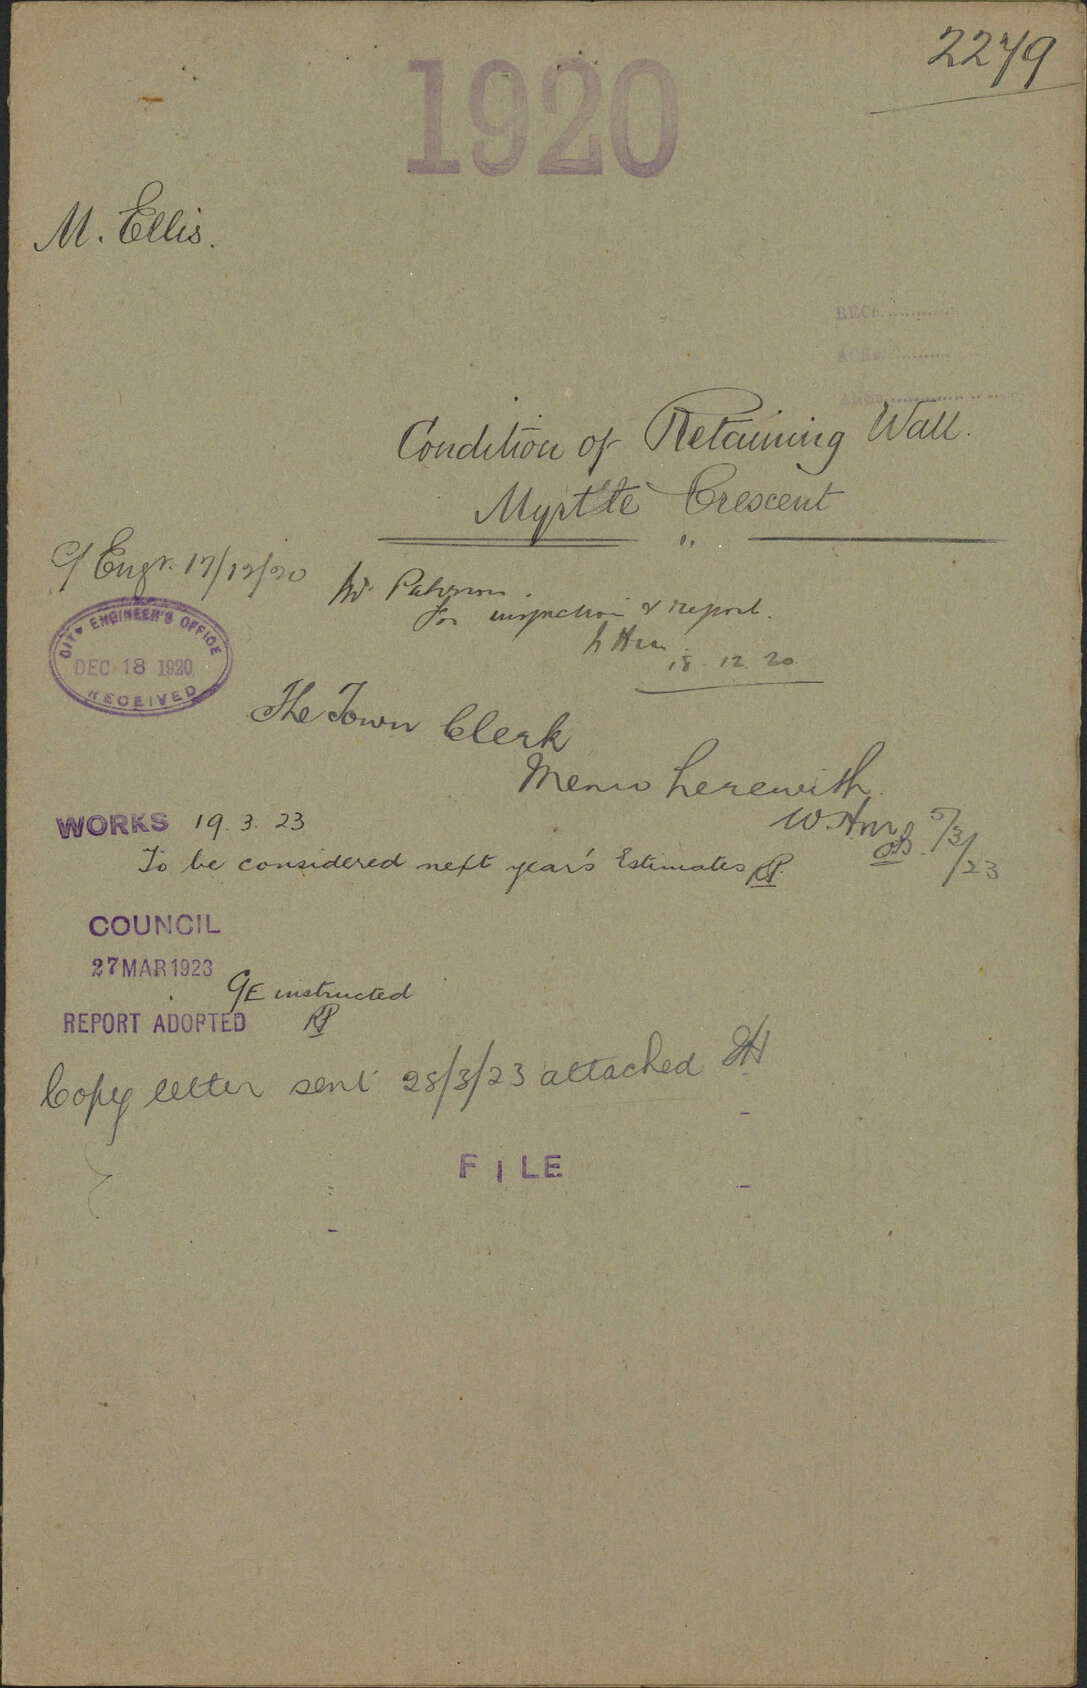 2279
1920
M. Ellis.
REC
ACK
ANS
Condition of Retaining Wall.
Myrtle Crescent
C/Engr. 17/12/20
Mr. Paterson.
for inspection & report.
18.12.20
CITY ENGINEER'S OFFICE
DEC 18 1920
RECEIVED
The Town Clerk
Memo herewith.
5/3/23
WORKS 19.3.23
To be considered next year's Estimates
COUNCIL
27 MAR 1923
CE instructed
REPORT ADOPTED
Copy letter sent 28/3/23 attached
FILE